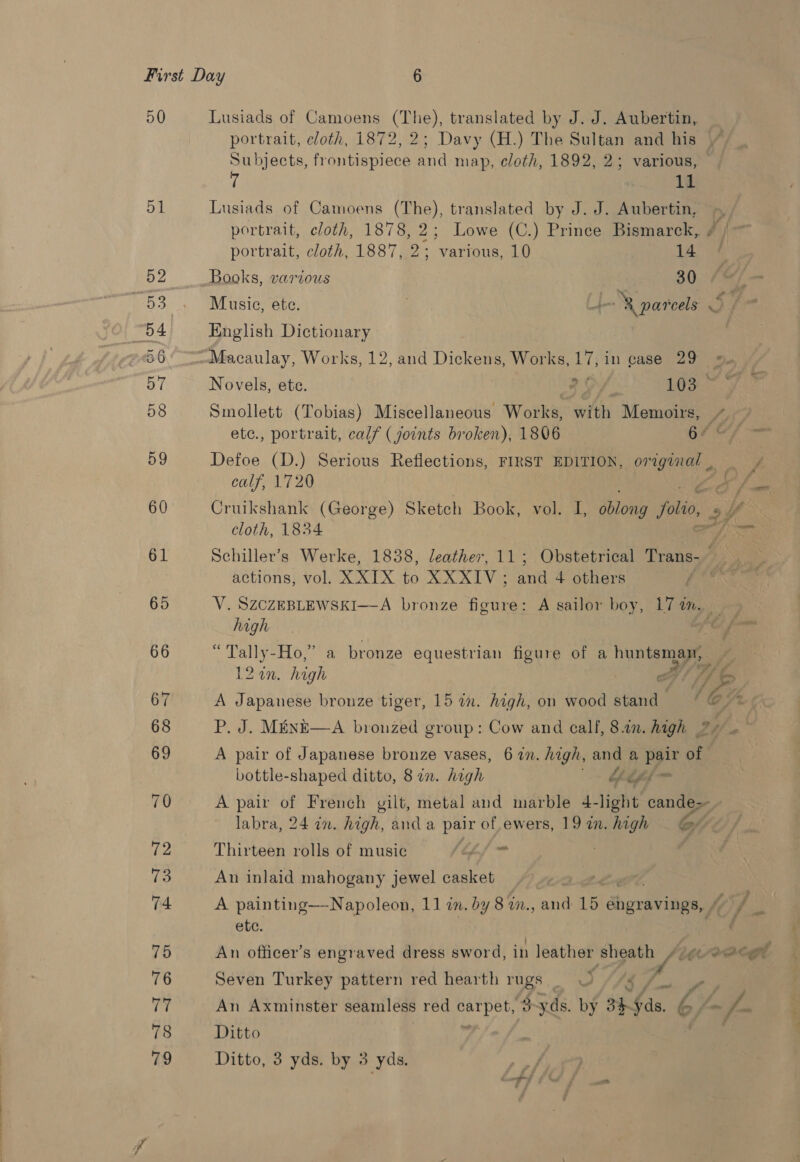 First Day 6
50 Lusiads of Camoens (The), translated by J. J. Aubertin,
portrait, cloth, 1872, 2; Davy (H.) The Sultan and his
Subjects, frontispiece and map, cloth, 1892, 2; various,
7 11
51 Lusiads of Camoens (The), translated by J. J. Aubertin,
portrait, cloth, 1878, 2; Lowe (C.) Prince Bismarck,
portrait, cloth, 1887, 2; various, 10 14
52 Books, various 30
53 Music, etc. parcels
54 English Dictionary
56 Macaulay, Works, 12, and Dickens, Works, 17, in case 29
57 Novels, etc. 103
58 Smollett (Tobias) Miscellaneous Works, with Memoirs,
etc., portrait, calf (joints broken), 1806 6
59 Defoe (D.) Serious Reflections, FIRST EDITION, original
calf, 1720
60 Cruikshank (George) Sketch Book, vol. I, oblong folio,
cloth, 1834
61 Schiller's Werke, 1838, leather, 11; Obstetrical Trans-
actions, vol. XXIX to XXXIV; and 4 others
65 V. SZCZEBLEWSKI—A bronze figure: A sailor boy, 17 in.
high
66 "Tally-Ho," a bronze equestrian figure of a huntsman,
12 in. high
67 A Japanese bronze tiger, 15 in. high, on wood stand
68 P. J. MÊNÈ—A bronzed group: Cow and calf, 8 in. high
69 A pair of Japanese bronze vases, 6 in. high, and a pair of
bottle-shaped ditto, 8 in. high
70 A pair of French gilt, metal and marble 4-light cande-
labra, 24 in. high, and a pair of ewers, 19 in. high
72 Thirteen rolls of music
73 An inlaid mahogany jewel casket
74 A painting—Napoleon, 11 in. by 8 in., and 15 engravings,
etc.
75 An officer's engraved dress sword, in leather sheath
76 Seven Turkey pattern red hearth rugs
77 An Axminster seamless red carpet, 3 yds. by 3½ yds.
78 Ditto
79 Ditto, 3 yds. by 3 yds.